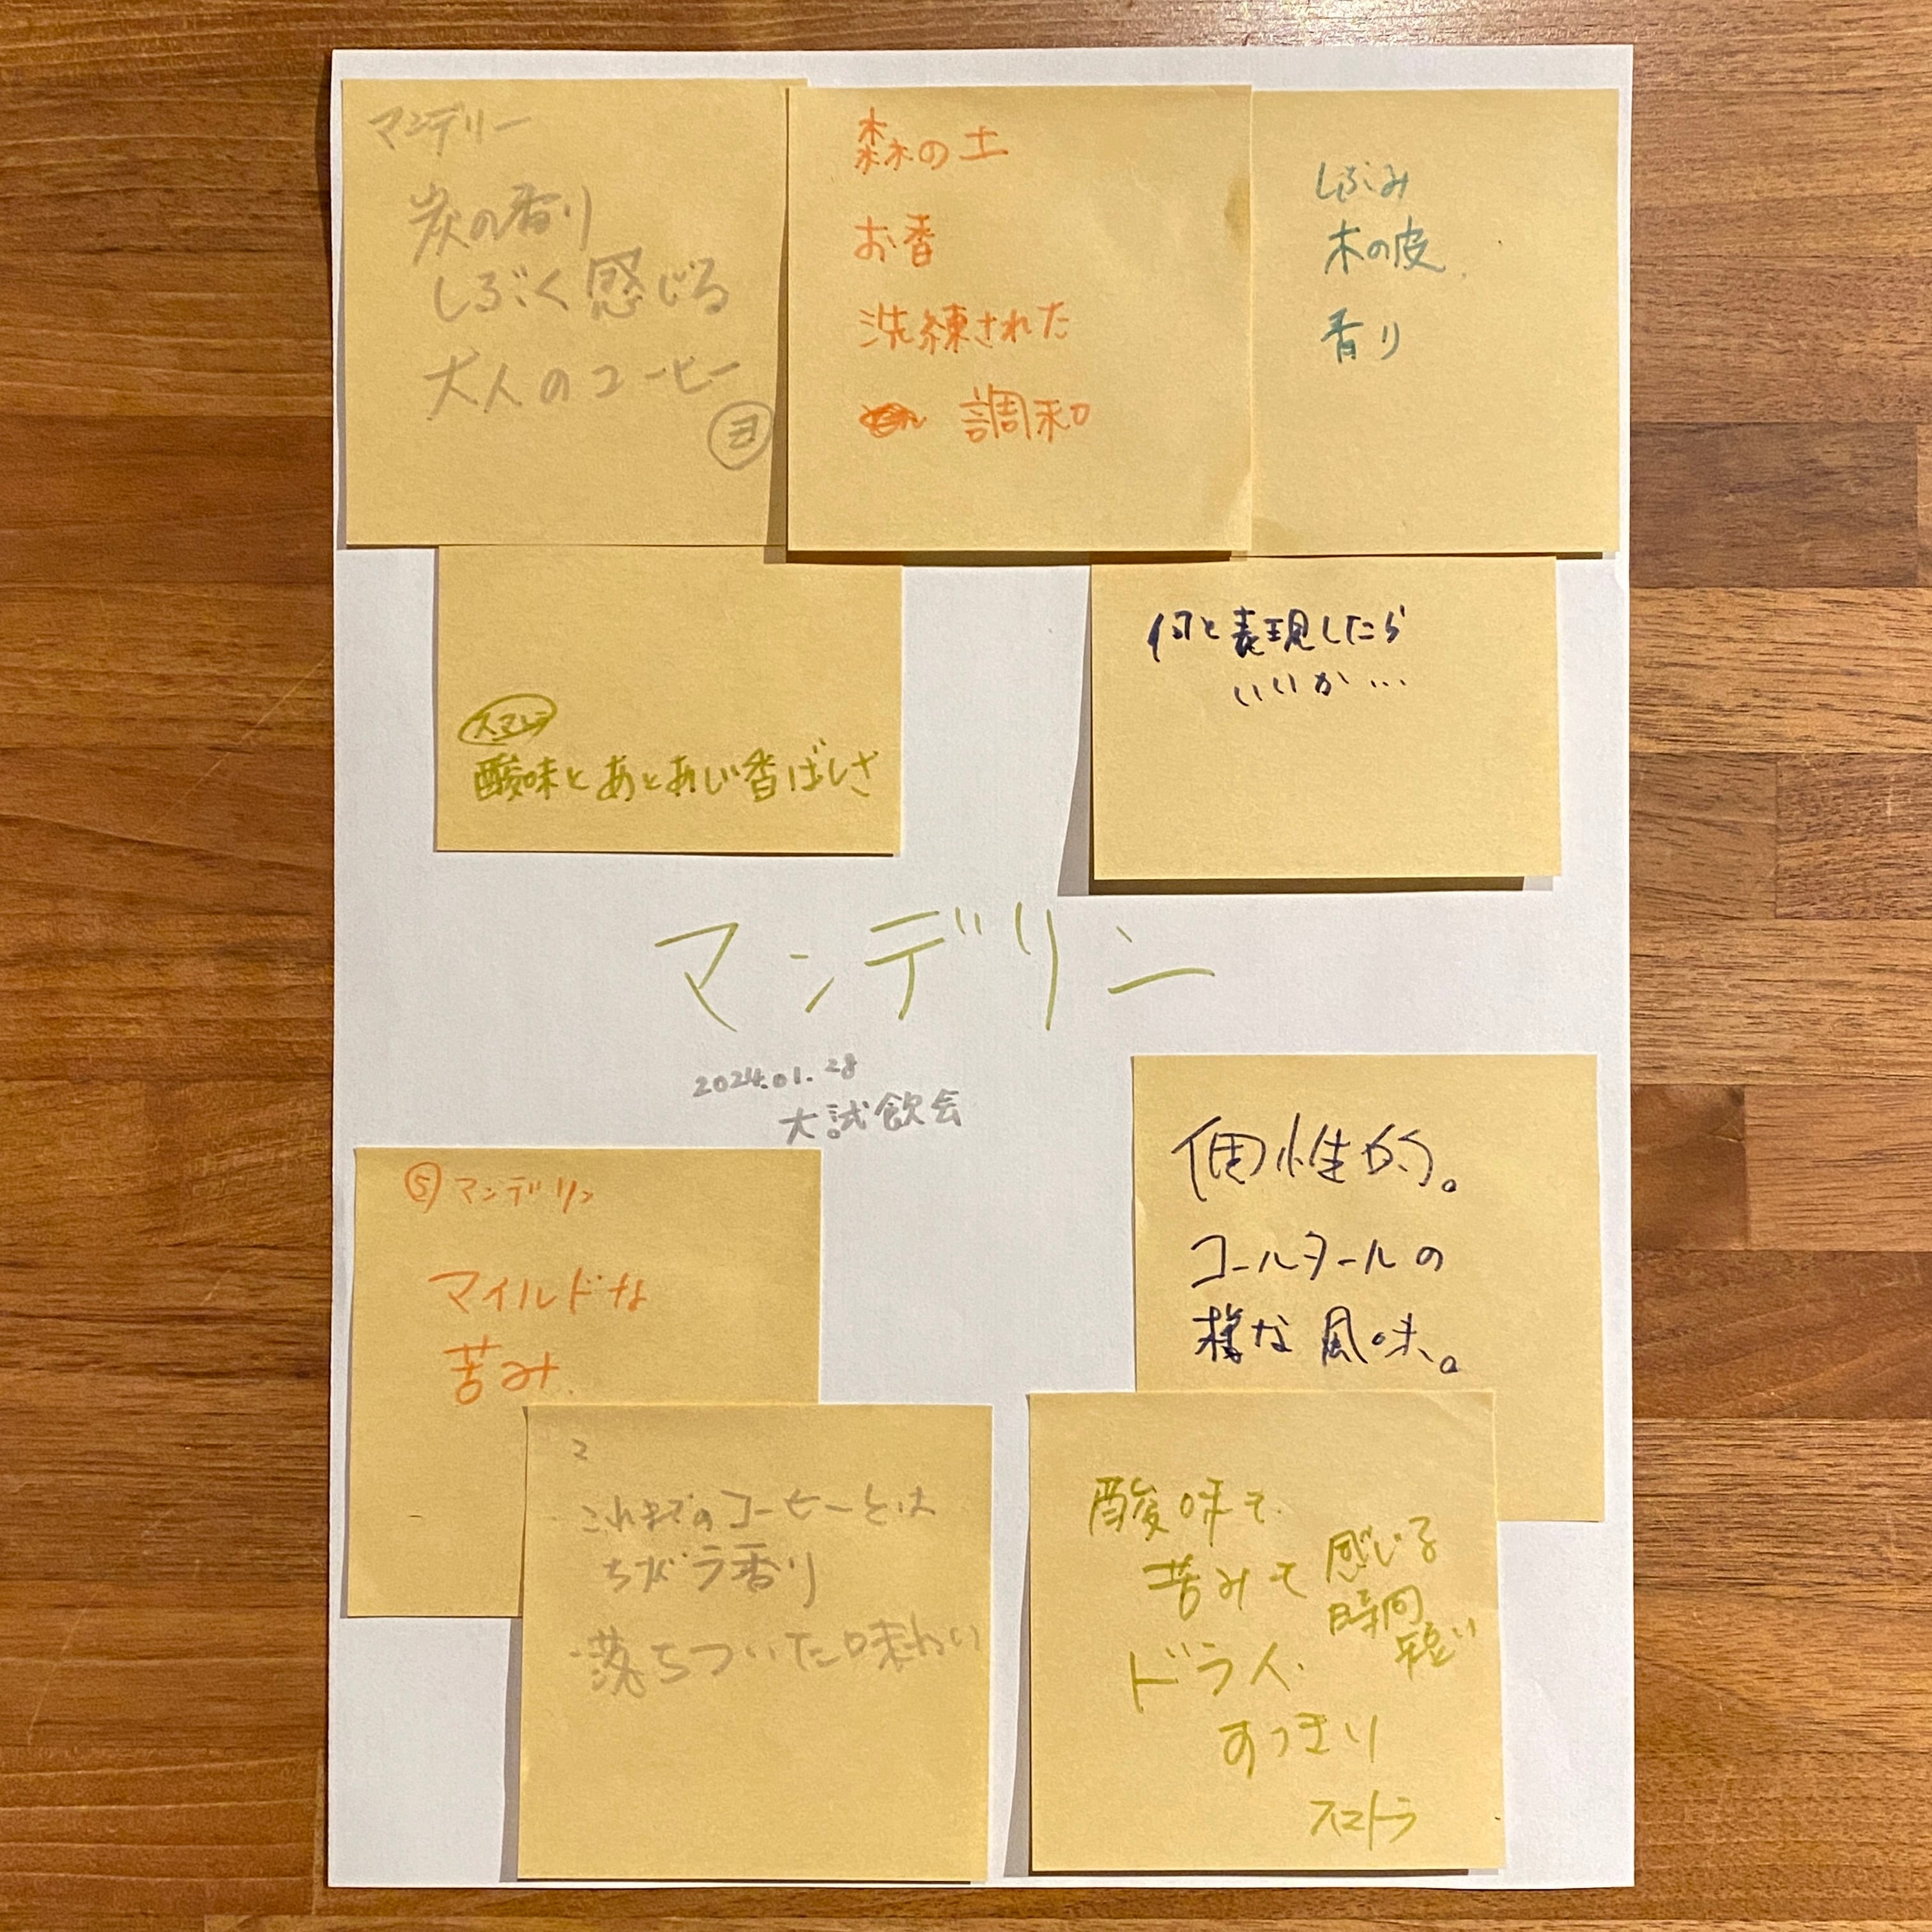 マンデリー
炭の香り
しぶく感じる
大人のコーヒー
ヨ
森の土
お香
洗練された
調和
しぶみ
木の皮
香り
酸味とあとあじ香ばしさ
何と表現したら
いいか…
マンデリン
2024.01.28
大試飲会
⑤マンデリン
マイルドな
苦み
個性的。
コールタールの
様な風味。
2
・これまでのコーヒーとは
ちがう香り
・落ちついた味わい
酸味も
苦みも感じる
時間
短い
ドライ
すっきり
スマトラ